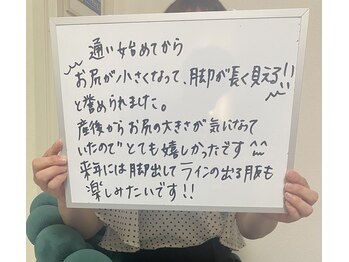 通い始めてから
お尻が小さくなって、脚が長く見える!!
と誉められました。
産後からお尻の大きさが気になって
いたのでとても嬉しかったです^^
来年には脚出してラインの出る服も
楽しみたいです!!